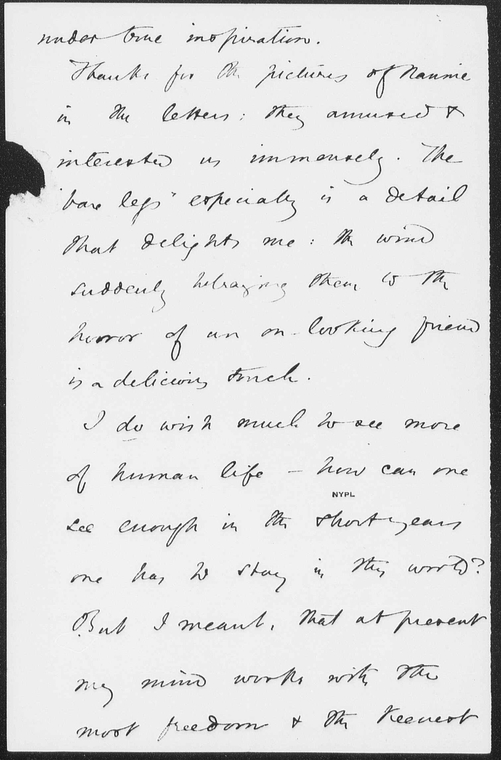 under true inspiration.
Thanks for the pictures of Nannie
in the letters: they amused &
interested us immensely. The
'bare legs' especially is a detail
that delights me: the wind
suddenly betraying them to the
horror of an on-looking friend
is a delicious touch.
I do wish much to see more
of human life — how can one
NYPL
see enough in the short years
one has to stay in this world?
But I meant, that at present
my mind works with the
most freedom & the keenest